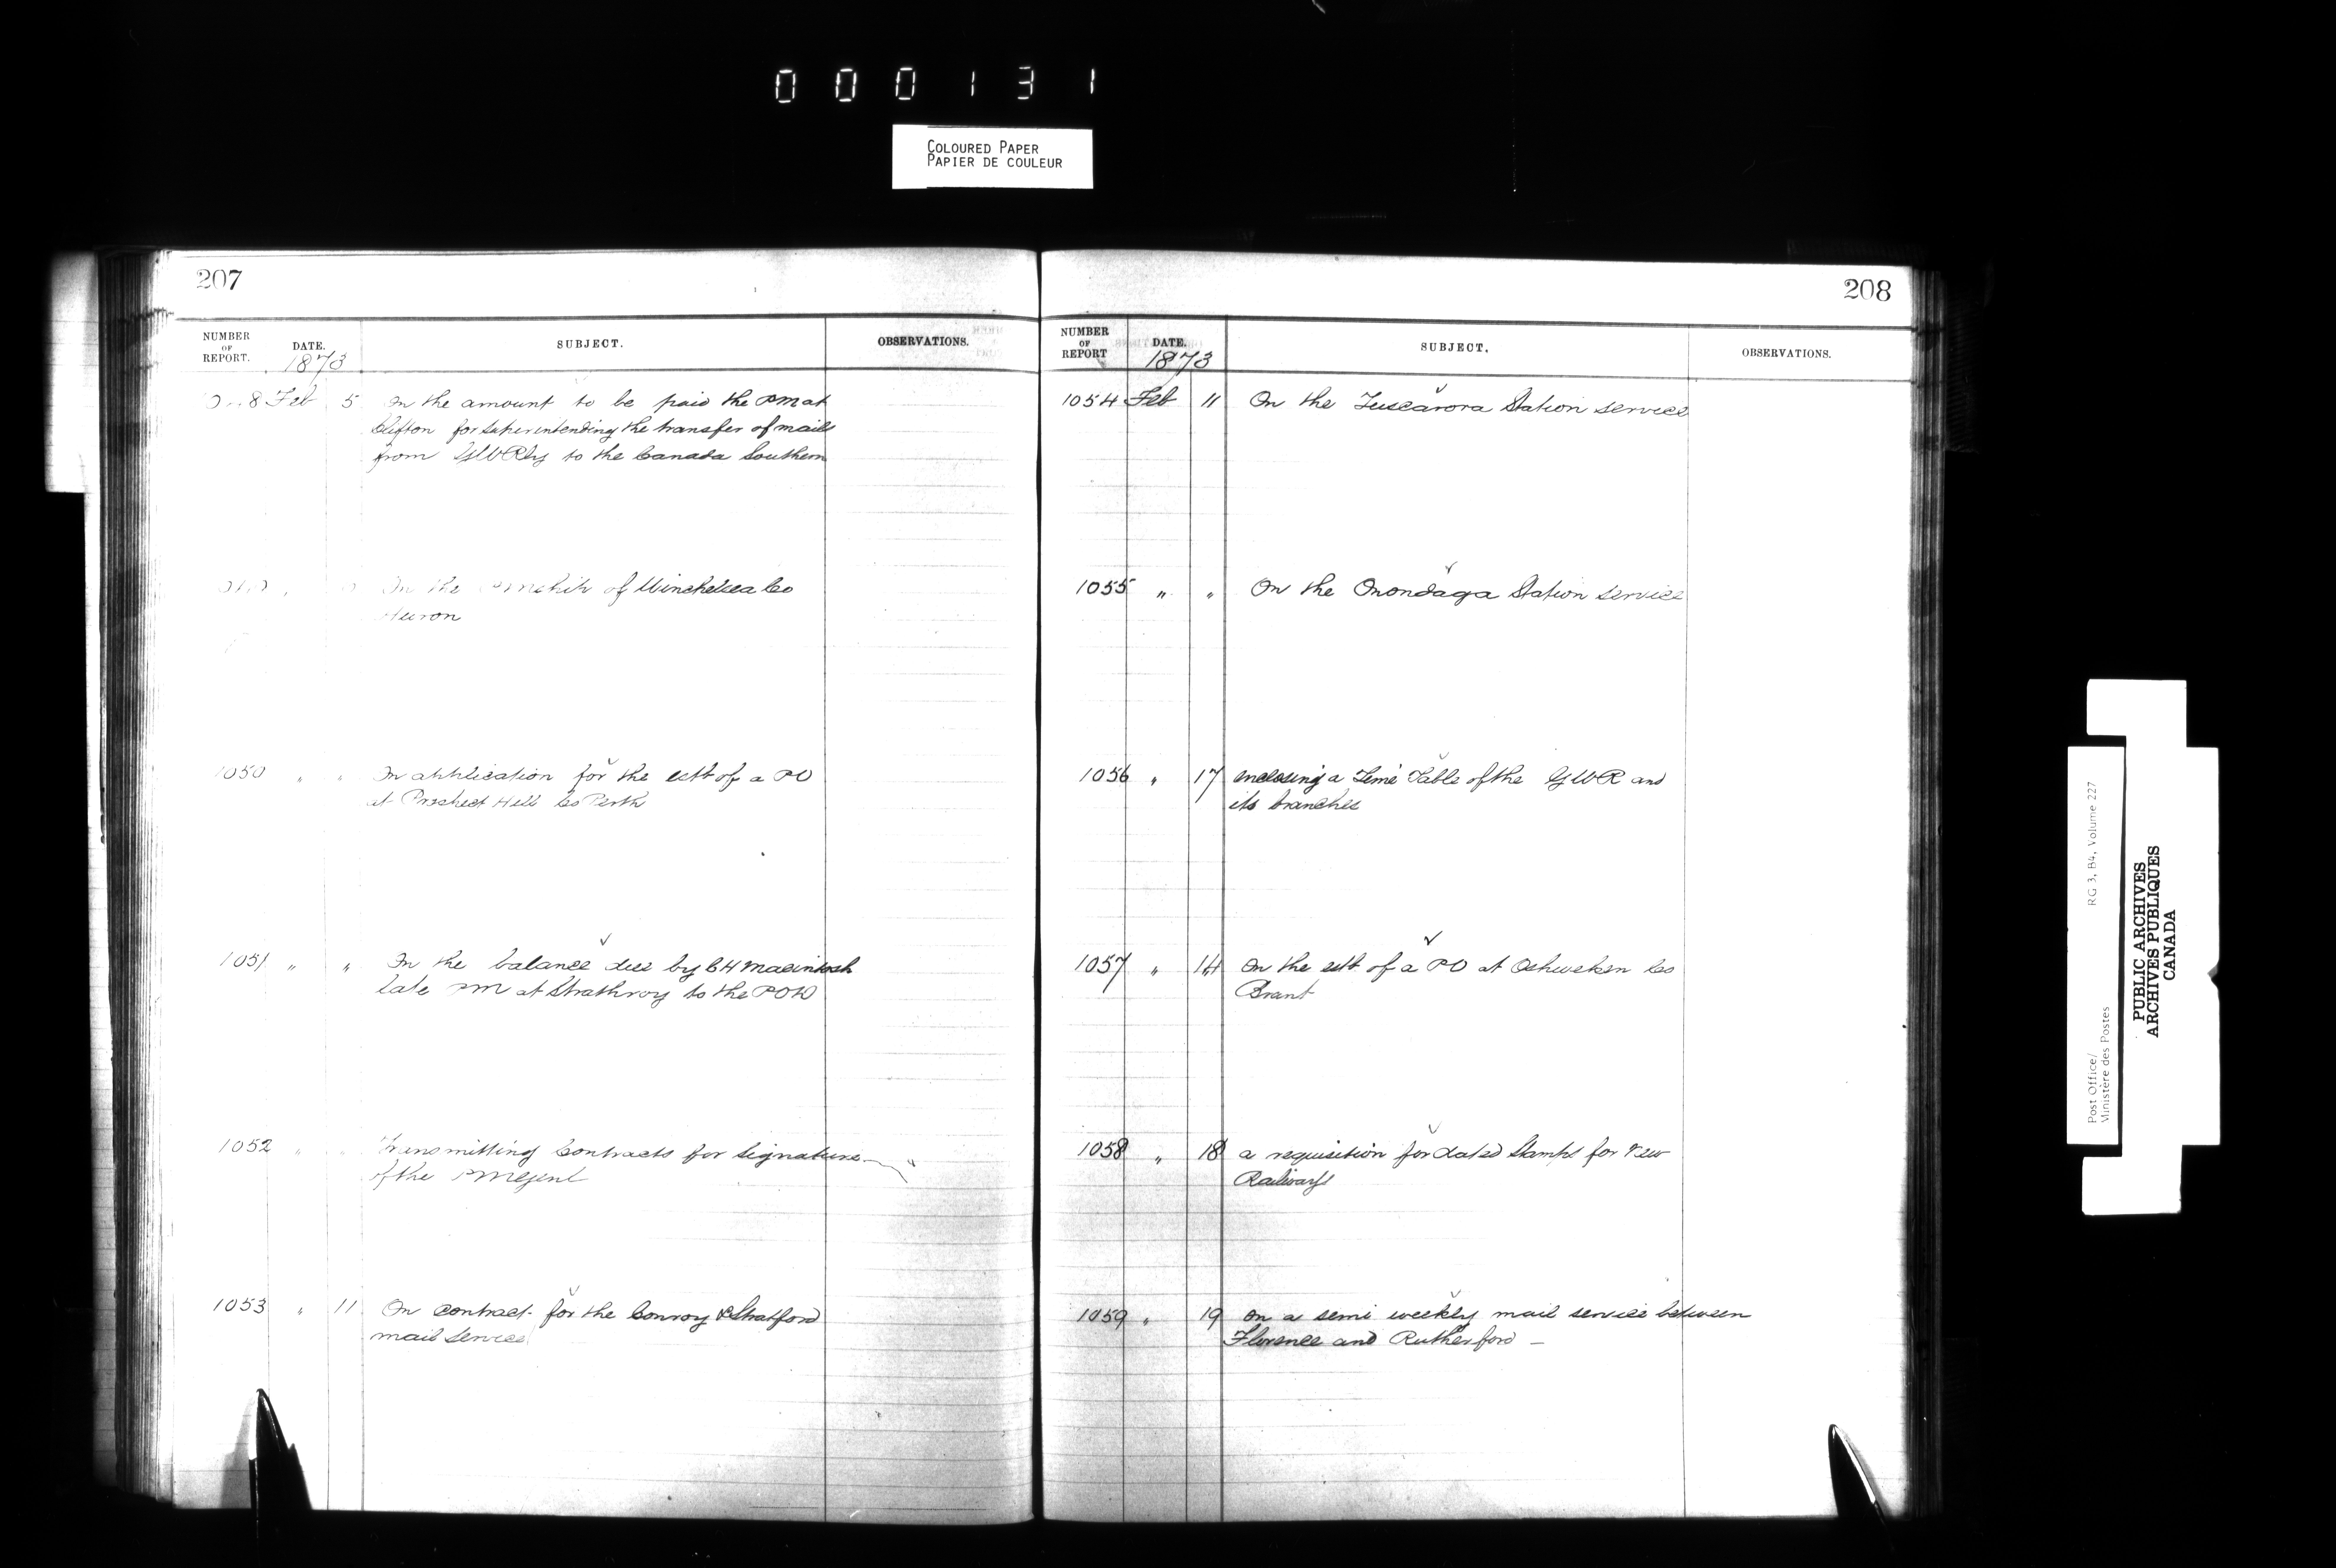 000131
COLOURED PAPER
PAPIER DE COULEUR
207
NUMBER OF REPORT. DATE. SUBJECT. OBSERVATIONS.
1873
8 Feb 5 On the amount to be paid the PM at
Clifton for superintending the transfer of mails
from GWRly to the Canada Southern
On the of Winchelsea Co
Huron
1050 " " On application for the estt of a PO
at Prospect Hill Co Perth
1051 " " On the balance due by CH Macintosh
late PM at Strathroy to the POD
1052 " " Transmitting Contracts for Signature
of the PMGenl
1053 " 11 On contract for the Conroy & Stratford
mail service
208
NUMBER OF REPORT DATE. SUBJECT. OBSERVATIONS.
1873
1054 Feb 11 On the Tuscarora Station service
1055 " " On the Onondaga Station service
1056 " 17 enclosing a Time Table of the GWR and
its branches
1057 " 14 On the estt of a PO at Oshweken Co
Brant
1058 " 18 a requisition for dated Stamps for
Railways
1059 " 19 On a semi weekly mail service between
Florence and Rutherford —
Post Office/
Ministère des Postes
RG 3, B4, Volume 227
PUBLIC ARCHIVES
ARCHIVES PUBLIQUES
CANADA